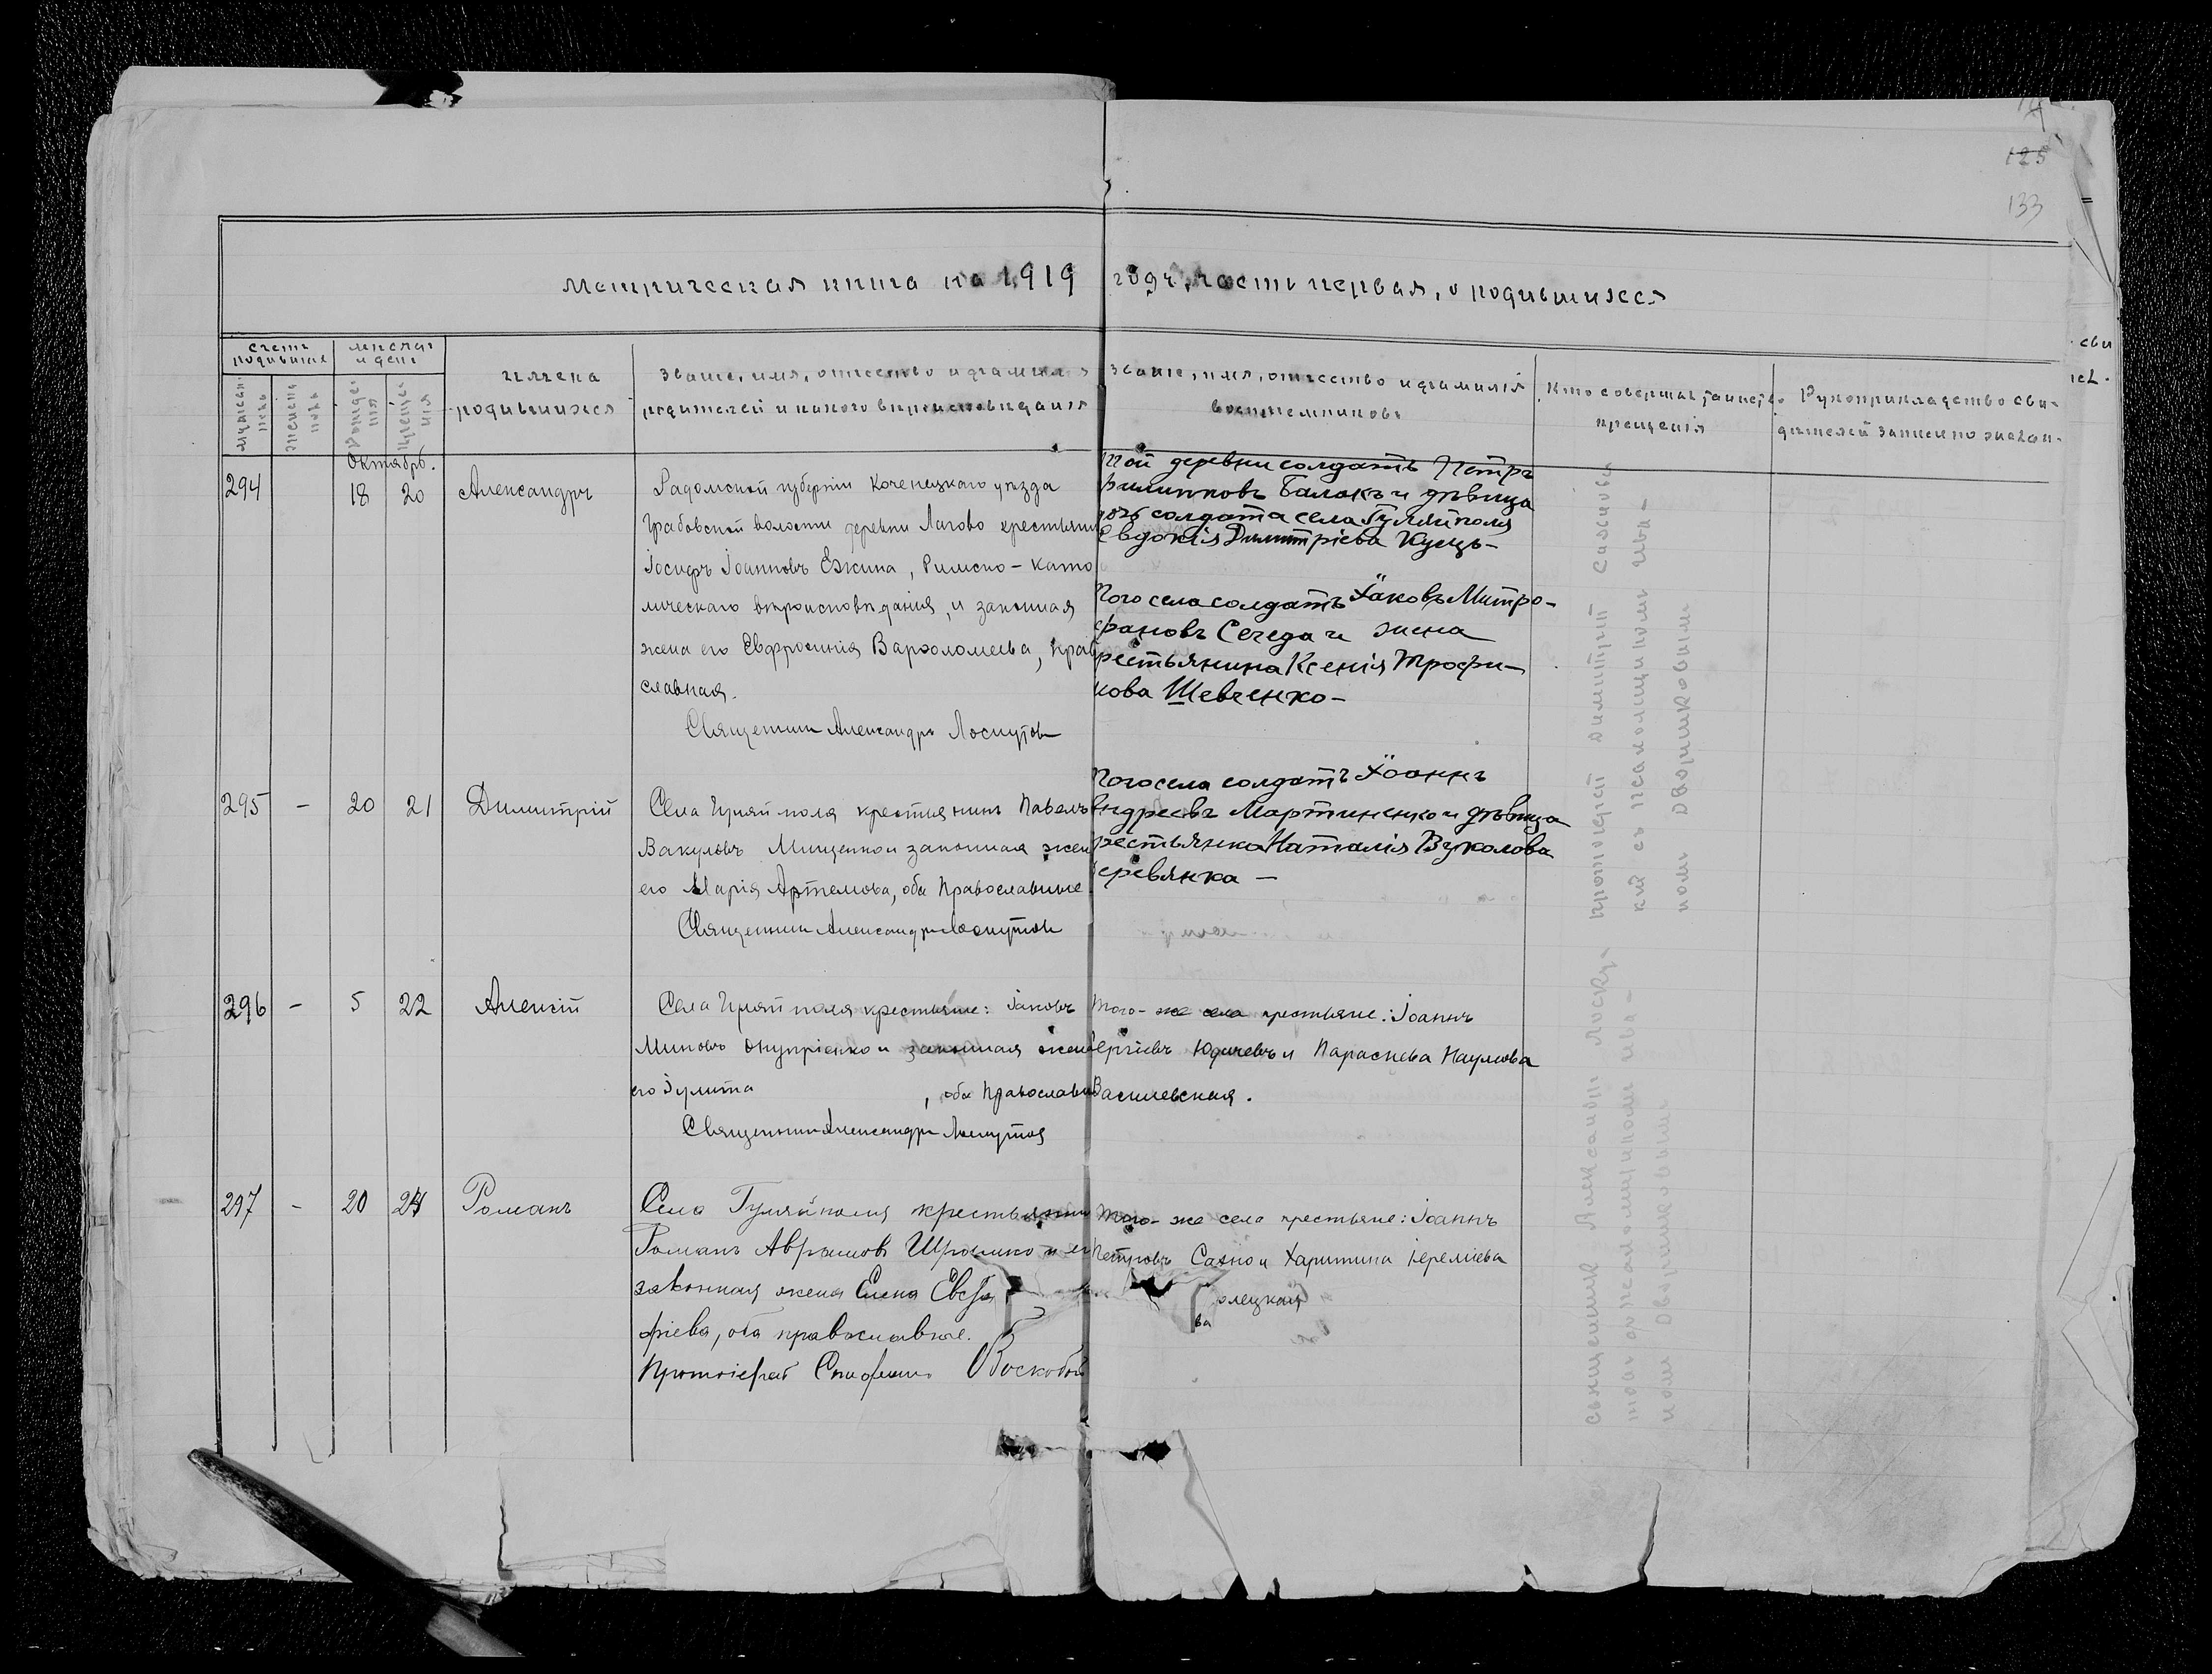 125
133
Метрическая книга на 1919 годъ, часть первая, о родившихся
Счетъ родившихся
Мѣсяцъ и день
Мужеска пола
Женска пола
Рожденія
Крещенія
Имена
родившихся
Званіе, имя, отчество и фамилія
родителей и какого вѣроисповѣданія
Званіе, имя, отчество и фамилія
воспріемниковъ
Кто совершалъ таинство
крещенія
Рукоприкладство сви-
дѣтелей записи по желан-
Октябрь.
294 18 20 Александръ
Радомской губерніи Коченецкаго уѣзда
Грабовской волости деревни Лагово крестьянинъ
Іосифъ Іоанновъ Ежина, Римско-като
лическаго вѣроисповѣданія, и законная
жена его Евфросинія Варѳоломеева, прав
славная.
Священникъ Александръ Лоскутовъ
той деревни солдатъ Петръ
Филипповъ Балакъ и дѣвица
дочь солдата села Гуляйполя
Евдокія Димитріева Куець-
Того села солдатъ Іаковъ Митро-
фановъ Середа и жена
крестьянина Ксенія Трофи-
мова Шевченко-
295 - 20 21 Димитрій
Села Гуляйполя крестьянинъ Павелъ
Вакуловъ Мищенко и законная жена
его Марія Артемова, оба Православные
Священникъ Александръ Лоскутовъ
Того села солдатъ Іоаннъ
Андреевъ Мартиненко и дѣвица
крестьянка Наталія Вуколова
Деревянка -
296 - 5 22 Алексій
Села Гуляйполя крестьяне: Іаковъ
Миновъ Онупріенко и законная жена
его Іулита , оба Православн
Священникъ Александръ Лоскутовъ
Того-же села крестьяне: Іоаннъ
Сергіевъ Юдичевъ и Параскева Наумова
Василевская.
297 - 20 24 Романъ
Села Гуляйполя крестьянин
Романъ Аврамовъ Шрамко и его
законная жена Елена Евста
фіева, оба православные.
Протоіерей Стефанъ Воскобой
Того-же села крестьяне: Іоаннъ
Петровъ Сахно и Харитина Іереміева
олецкая
ва
Протоіерей Димитрій Сахновс
кій съ псаломщикомъ Ива-
номъ Дворниковымъ
Священникъ Александръ Лоску-
товъ съ псаломщикомъ Ива-
номъ Дворниковымъ